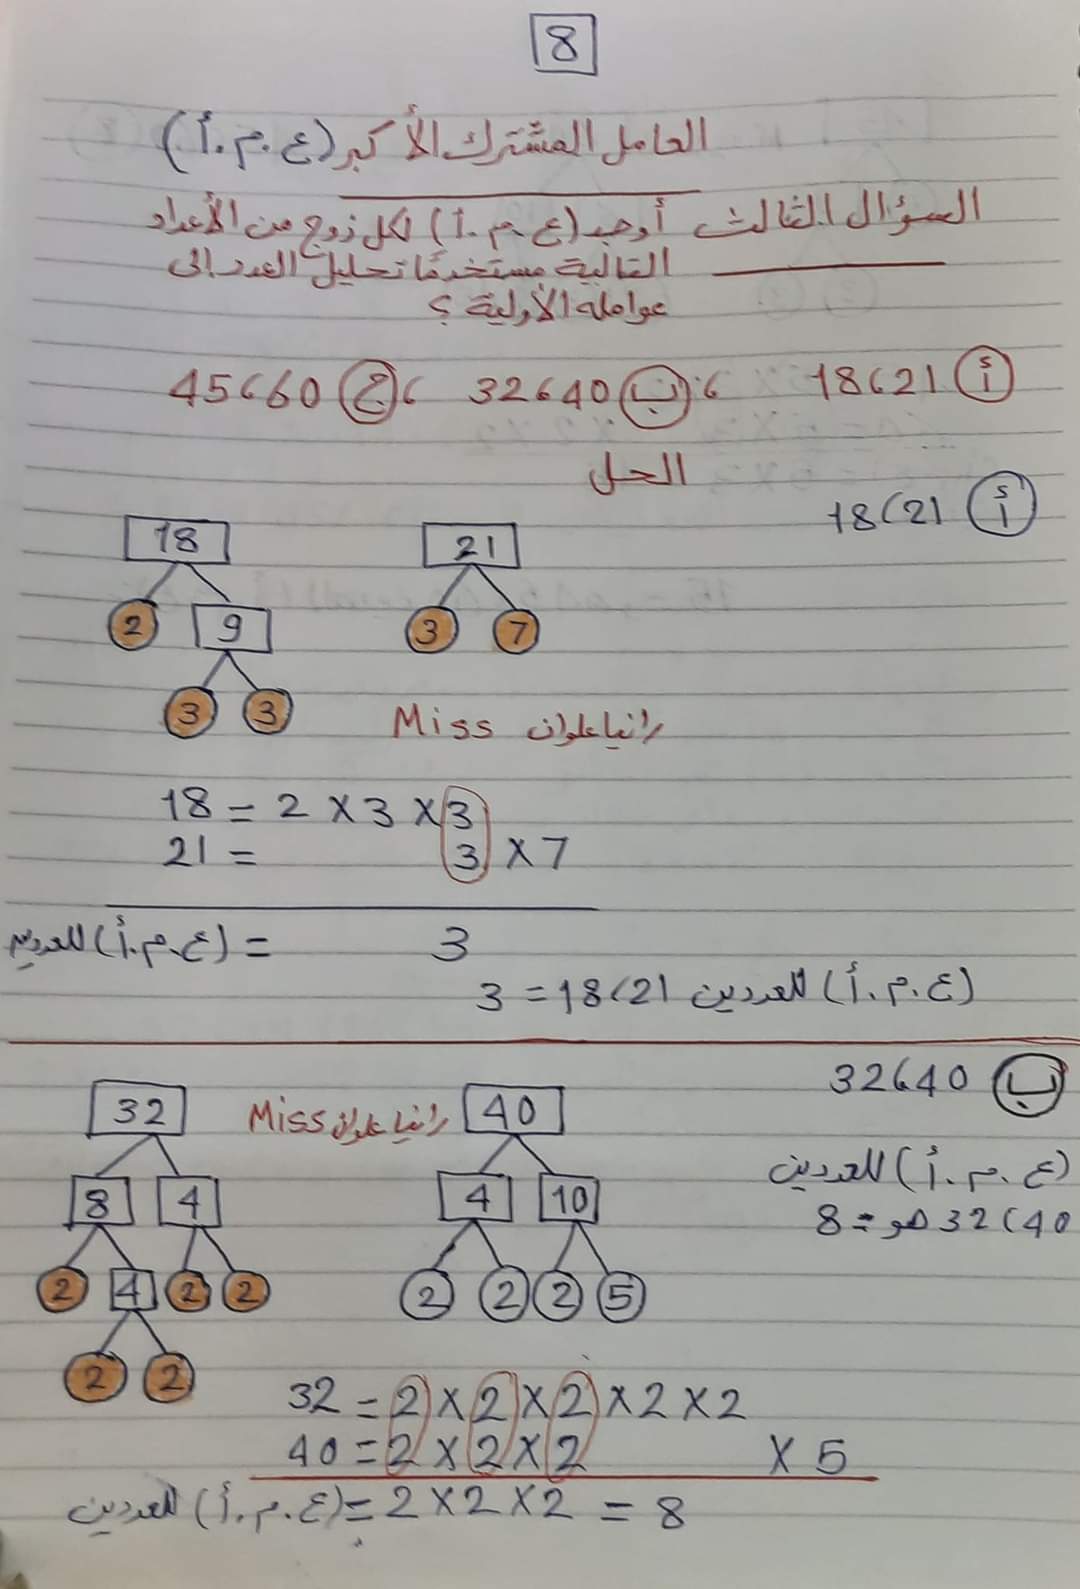 8
العامل المشترك الأكبر (ع.م.أ)
السؤال الثالث أوجد (ع.م.أ) لكل زوج من الأعداد
التالية مستخدمًا تحليل العدد إلى
عوامله الأولية ؟
أ 18،21 ،ب 32،40 ،ج 45،60
الحل
أ 18،21
18 21
2 9 3 7
3 3
Miss رانيا علوان
18 = 2 × 3 × 3
21 = 3 × 7
(ع.م.أ) للعددين = 3
(ع.م.أ) للعددين 18،21 = 3
ب 32،40
32 Miss رانيا علوان 40
8 4 4 10
(ع.م.أ) للعددين
32،40 هو = 8
2 4 2 2 2 2 2 5
2 2
32 = 2 × 2 × 2 × 2 × 2
40 = 2 × 2 × 2 × 5
(ع.م.أ) للعددين = 2 × 2 × 2 = 8